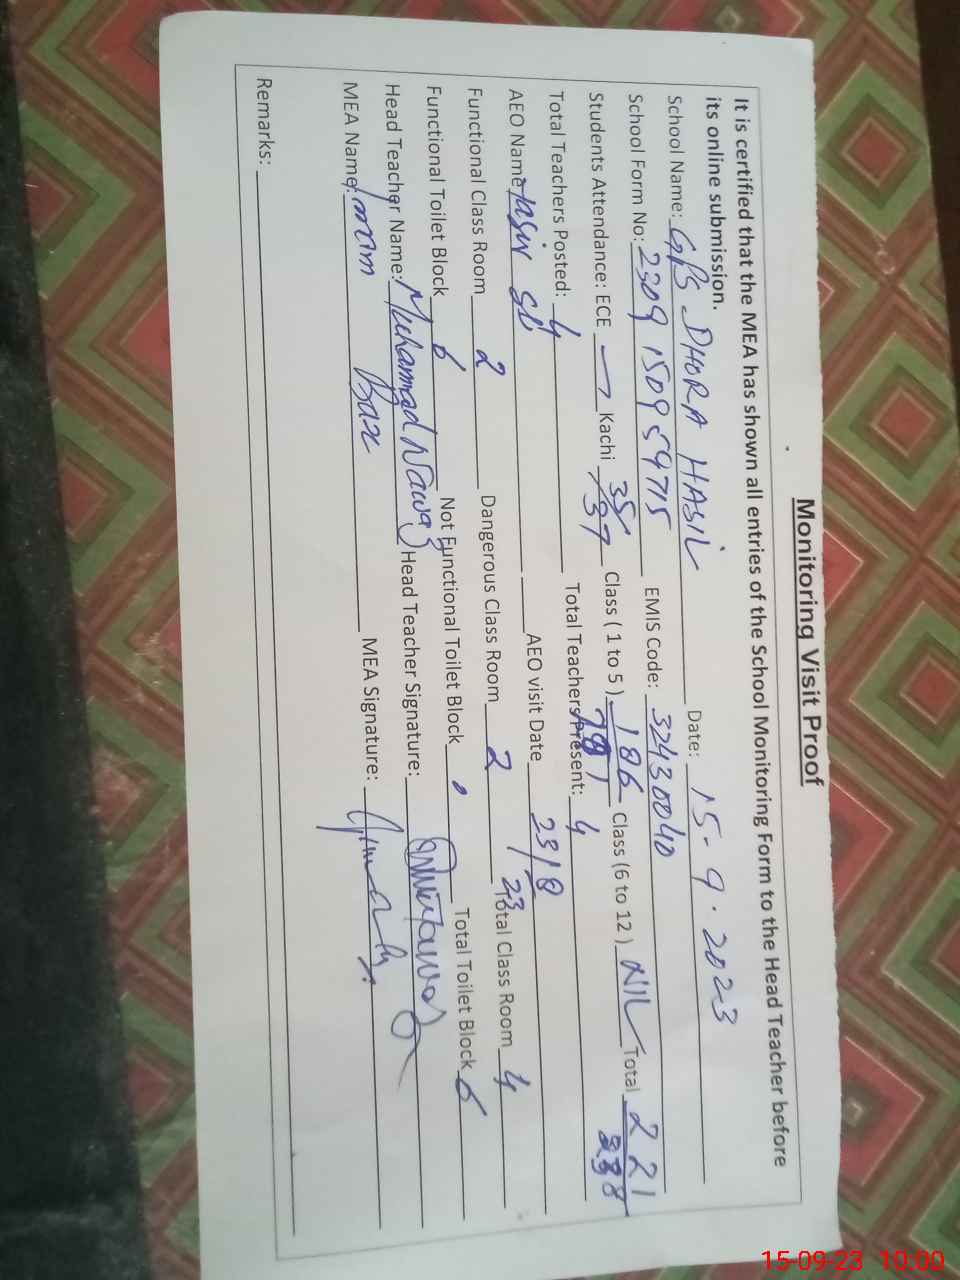 Monitoring Visit Proof
It is certified that the MEA has shown all entries of the School Monitoring Form to the Head Teacher before
its online submission.
School Name: GPS DHORA HASIL Date: 15-9.2023
School Form No: 2309 1509 59715 EMIS Code: 32430040
Students Attendance: ECE — Kachi 35/37 Class ( 1 to 5 ) 186 Class (6 to 12 ) NIL Total 221
238
Total Teachers Posted: 4 Total Teachers Present: 4
AEO Name AEO visit Date 23/8
23
Functional Class Room 2 Dangerous Class Room 2 Total Class Room 4
Functional Toilet Block 6 Not Functional Toilet Block Total Toilet Block 6
Head Teacher Name: Muhammad Nawaz Head Teacher Signature:
MEA Name: MEA Signature:
Remarks:
15-09-23 10:00